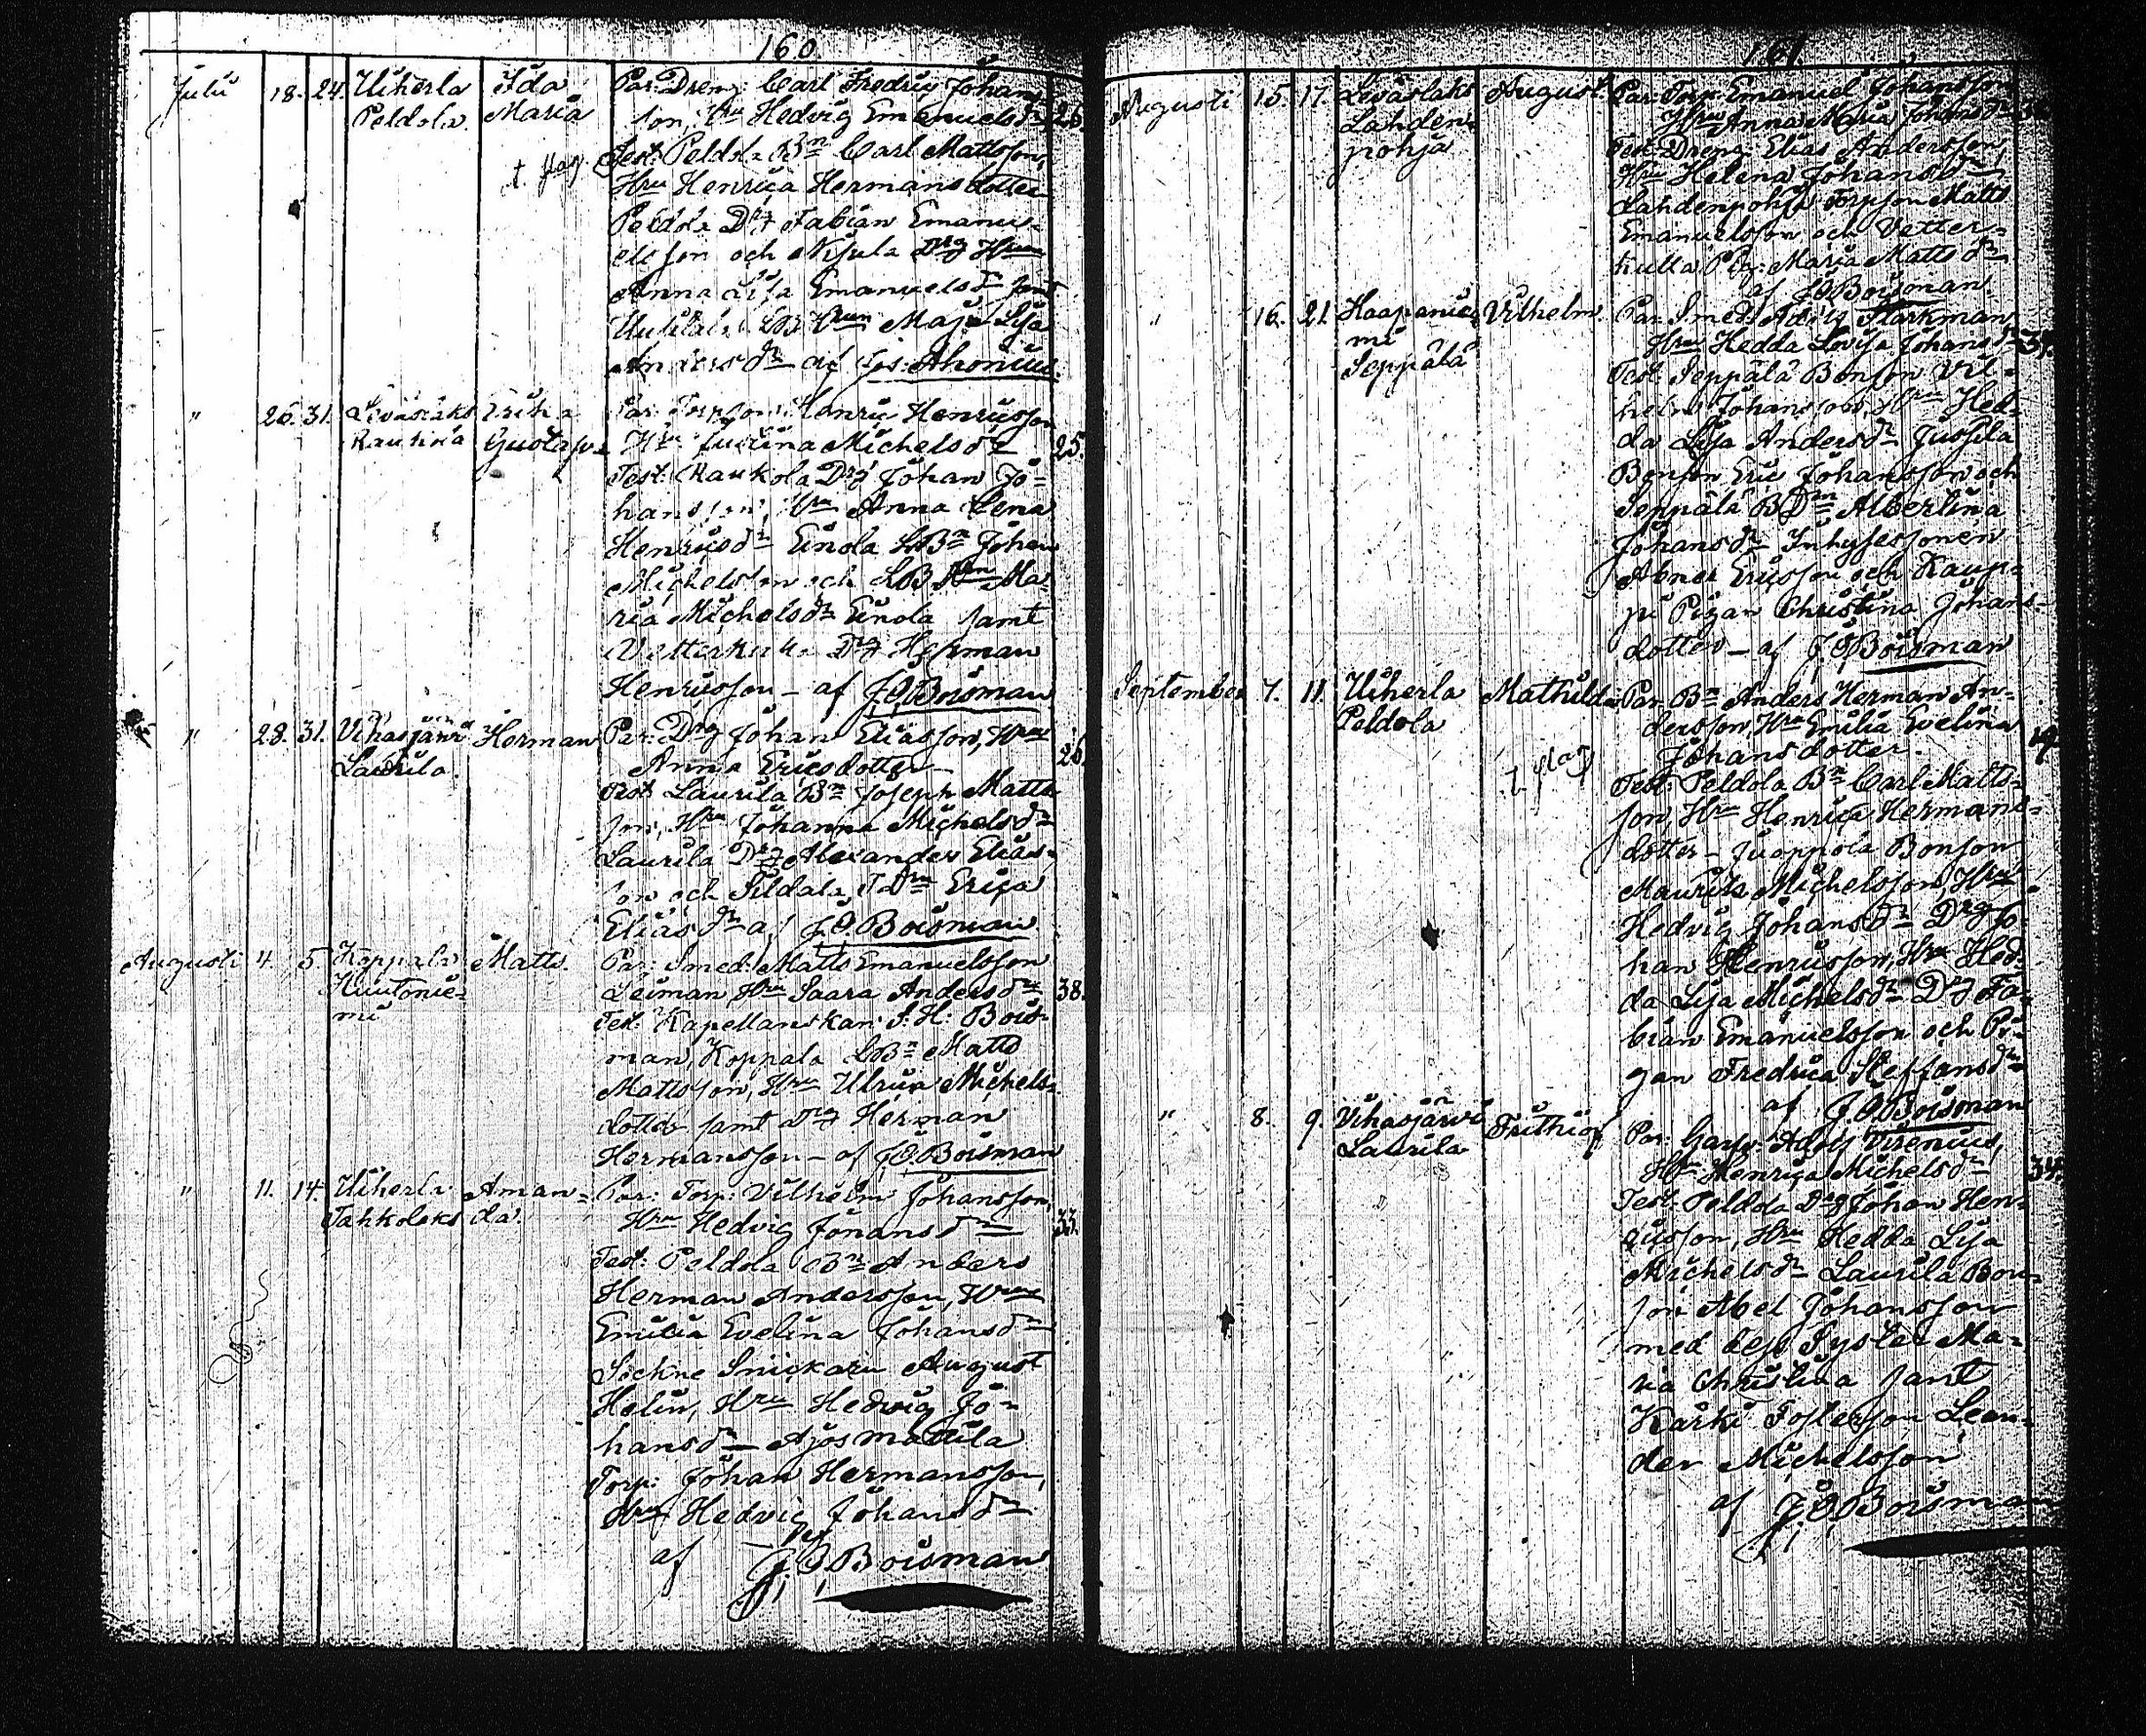 160.
Juli 18. 24. Uiherla Ida Par. Dreng: Carl Fredric Johans-
Peldola. Maria son, Hru Hedvig Emanuelsdr 26.
Test: Peldola Bn Carl Mattsson,
Hru Henrica Hermansdotter
Peldola Drg Fabian Emanu-
elsson och Drg Hrun
Anna Lisa Emanuelsdr samt
Hrun Maja Lisa
Andersdr af Jos: Ahonius.
" 26. 31. Par: Henric Henricsson
Gustava Hru Michelsdr 25.
Test: Drg Johan Jo-
hansson, Hru Anna Lena
Henricsdr Einola LBn Johan
Michelsson och LB Ma-
ria Michelsdr Einola samt
Drg Herman
Henricsson – af J.O. Boisman
" 28. 31. Vihasjärvi Herman Par: Drg Johan Eliasson, Hru
Laurila. Anna Ericsdotter 26
Test: Laurila Bn Joseph Matts-
son, Hru Johanna Michelsdr
Laurila Drg Alexander Elias-
son och Erica
Eliasdr af J.O. Boisman
Augusti 4. 5. Koppala Matts. Par: Smed: Matts Emanuelsson
Huutonie- Leiman, Hru Saara Andersdr 38.
mi Test: Kapellanskan S. H. Bois-
man, Koppala LBn Matts
Mattsson, Hru Ulrica Michels-
dotter samt Drg Herman
Hermansson – af J.O. Boisman
" 11. 14. Uiherla Aman- Par: Torp: Vilhelm Johansson,
Tahkolaks da. Hru Hedvig Johansdr 33.
Test: Peldola Bn Anders
Herman Andersson, Hru
Emilia Evelina Johansdr
Sockne Snickarn August
Helin, Hru Hedvig Jo-
hansdr – Ajosmattila
Torp: Johan Hermansson,
Hru Hedvig Johansdr
af J.O. Boisman
161.
Augusti 15. 17. August Par: Torp: Emanuel Johansson
Lahden- Hru Anna Maria Johansdr
pohja Test: Dreng: Elias Andersson,
Hru Helena Johansdr
Lahdenpohja Torpson Matts
Emanuelsson och Vetter-
kulla Pig: Maria Mattsdr
af J.O. Boisman.
" 16. 21. Haapanie- Vilhelm. Par: Smed: Adolf Starkman
mi Hru Hedda Lovisa Johansdr 37.
Seppälä Test: Seppälä Bonson Vil-
helm Johansson, Hru Hed-
da Lisa Andersdr Jussila
Bonson Eric Johansson och
Seppälä BDn Albertina
Johansdr Inhysessonen
Abner Ericsson och Kaup-
pi Pigan Christina Johans-
dotter – af J.O. Boisman
September 7. 11. Uiherla Mathilda Par. Bn Anders Herman An-
Peldola dersson, Hru Emilia Evelina
Johansdotter. 19.
Test: Peldola Bn Carl Matts-
son, Hru Henrica Hermans-
dotter – Juoppola Bonson
Maurits Michelsson, Hru
Hedvig Johansdr Drg Jo-
han Henricsson, Hru Hed-
da Lisa Michelsdr Drg Fa-
bian Emanuelsson och Pi-
gan Fredrica Steffansdr
af J.O. Boisman
" 8. 9. Vihasjärvi Frithiof Par: Garfv: Adolf Virenius,
Laurila Hru Henrica Michelsdr 34.
Test: Peldola Drg Johan Hen-
ricsson, Hru Hedda Lisa
Michelsdr Laurila Bon-
son Abel Johansson
med dess Syster Ma-
ria Christina samt
Kärki Fosterson Lean-
der Michelsson
af J.O. Boisman